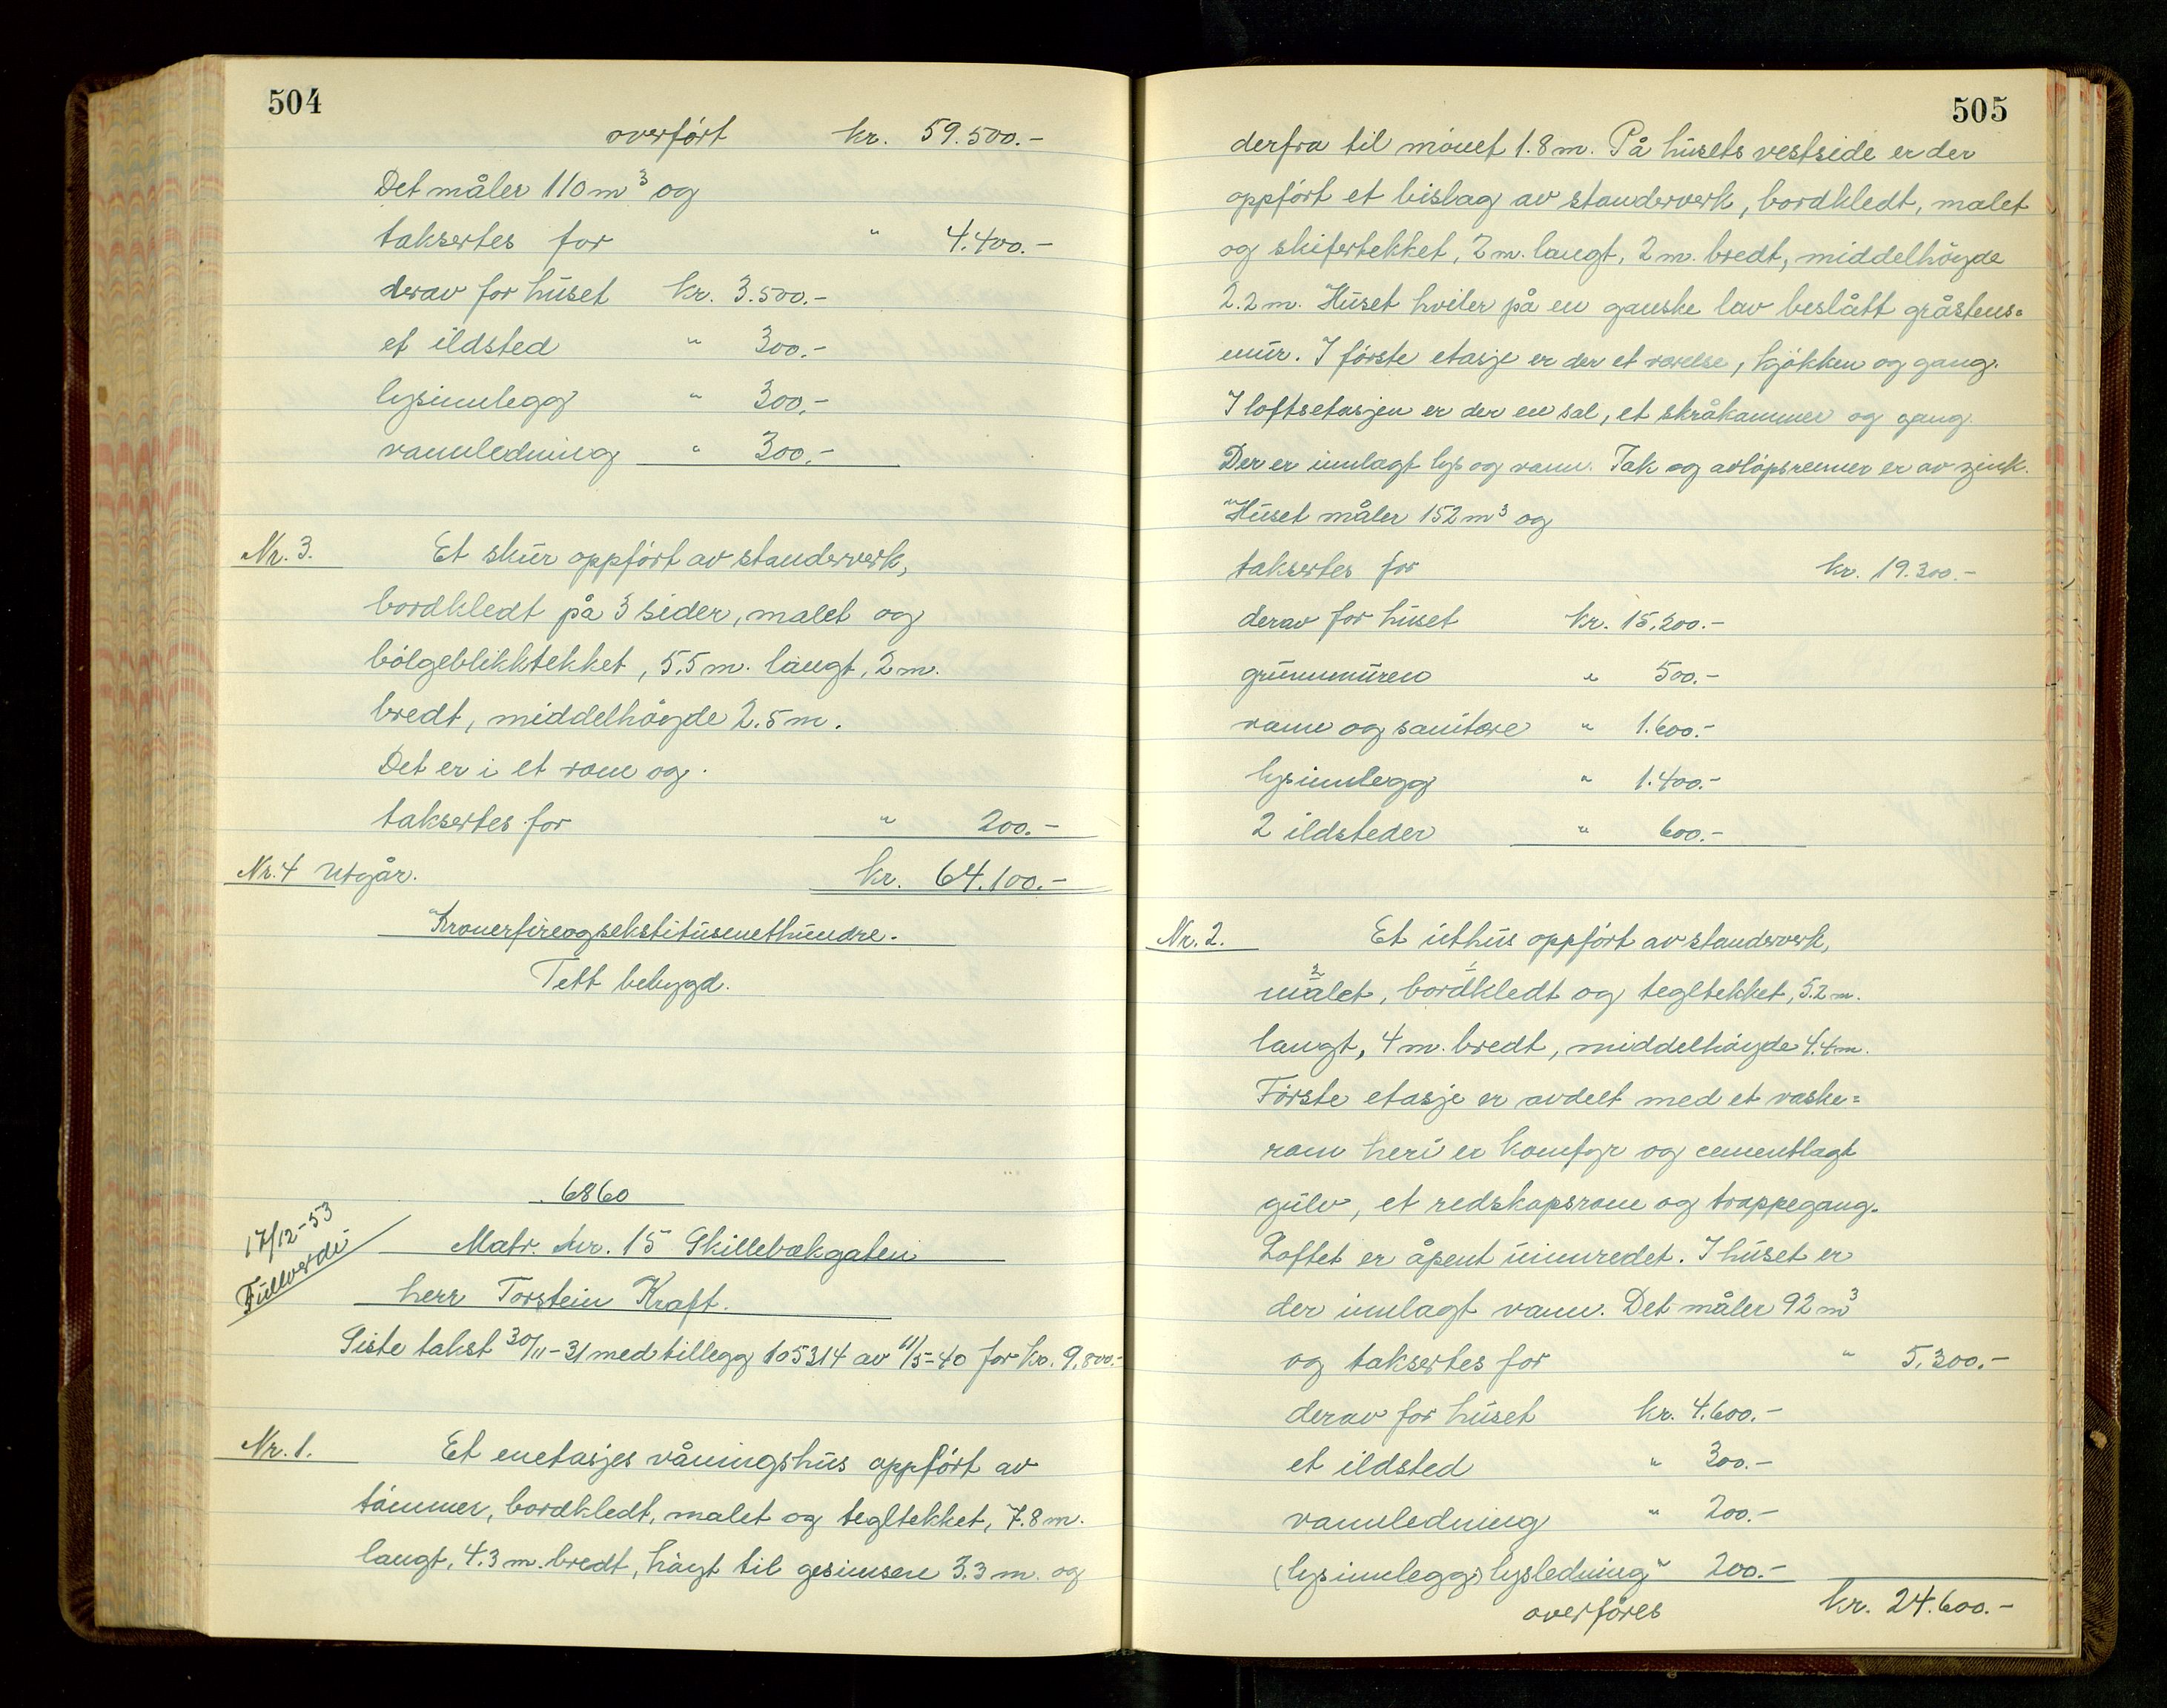 504
overført kr. 59.500.-
Det måler 110 m³ og
taksertes for " 4.400.-
derav for huset kr. 3.500.-
et ildsted " 300.-
lysinnlegg " 300.-
vannledning " 300.-
Nr. 3. Et skur oppført av standerverk,
bordkledt på 3 sider, malet og
bølgeblikktekket, 5.5 m. langt, 2 m.
bredt, middelhøyde 2.5 m.
Det er i et rom og
taksertes for " 200.-
Nr. 4 utgår. kr. 64.100.-
Kronerfireogsekstitusenethundre.
Tett bebygd.
6860
17/12-53
Fullverdi
Matr. Nr. 15 Skillebækgaten
herr Torstein Kraft.
Siste takst 30/11-31 med tillegg 105314 av 11/5-40 for kr. 9.800.-
Nr. 1. Et enetasjes våningshus oppført av
tømmer, bordkledt, malet og tegltekket, 7.8 m.
langt, 4.3 m. bredt, høyt til gesimsene 3.3 m. og
505
derfra til mønet 1.8 m. På husets vestside er der
oppført et bislag av standerverk, bordkledt, malet
og skifertekket, 2 m. langt, 2 m. bredt, middelhøyde
2.2 m. Huset hviler på en ganske lav beslått gråstens=
mur. I første etasje er der et værelse, kjøkken og gang.
I loftsetasjen er der en sal, et skråkammer og gang.
Der er innlagt lys og vann. Tak og avløpsrenner er av zink.
Huset måler 152 m³ og
taksertes for kr. 19.300.-
derav for huset kr. 15.200.-
grunnmuren " 500.-
vann og sanitære " 1.600.-
lysinnlegg " 1.400.-
2 ildsteder " 600.-
Nr. 2. Et uthus oppført av standerverk,
2 1
malet, bordkledt og tegltekket, 5.2 m.
langt, 4 m. bredt, middelhøyde 4.4 m.
Første etasje er avdelt med et vaske=
rom heri er komfyr og cementlagt
gulv, et redskapsrom og trappegang.
Loftet er åpent uinnredet. I huset er
der innlagt vann. Det måler 92 m³
og taksertes for " 5.300.-
derav for huset kr. 4.600.-
et ildsted " 300.-
vannledning " 200.-
(lysinnlegg) lysledning " 200.-
overføres kr. 24.600.-